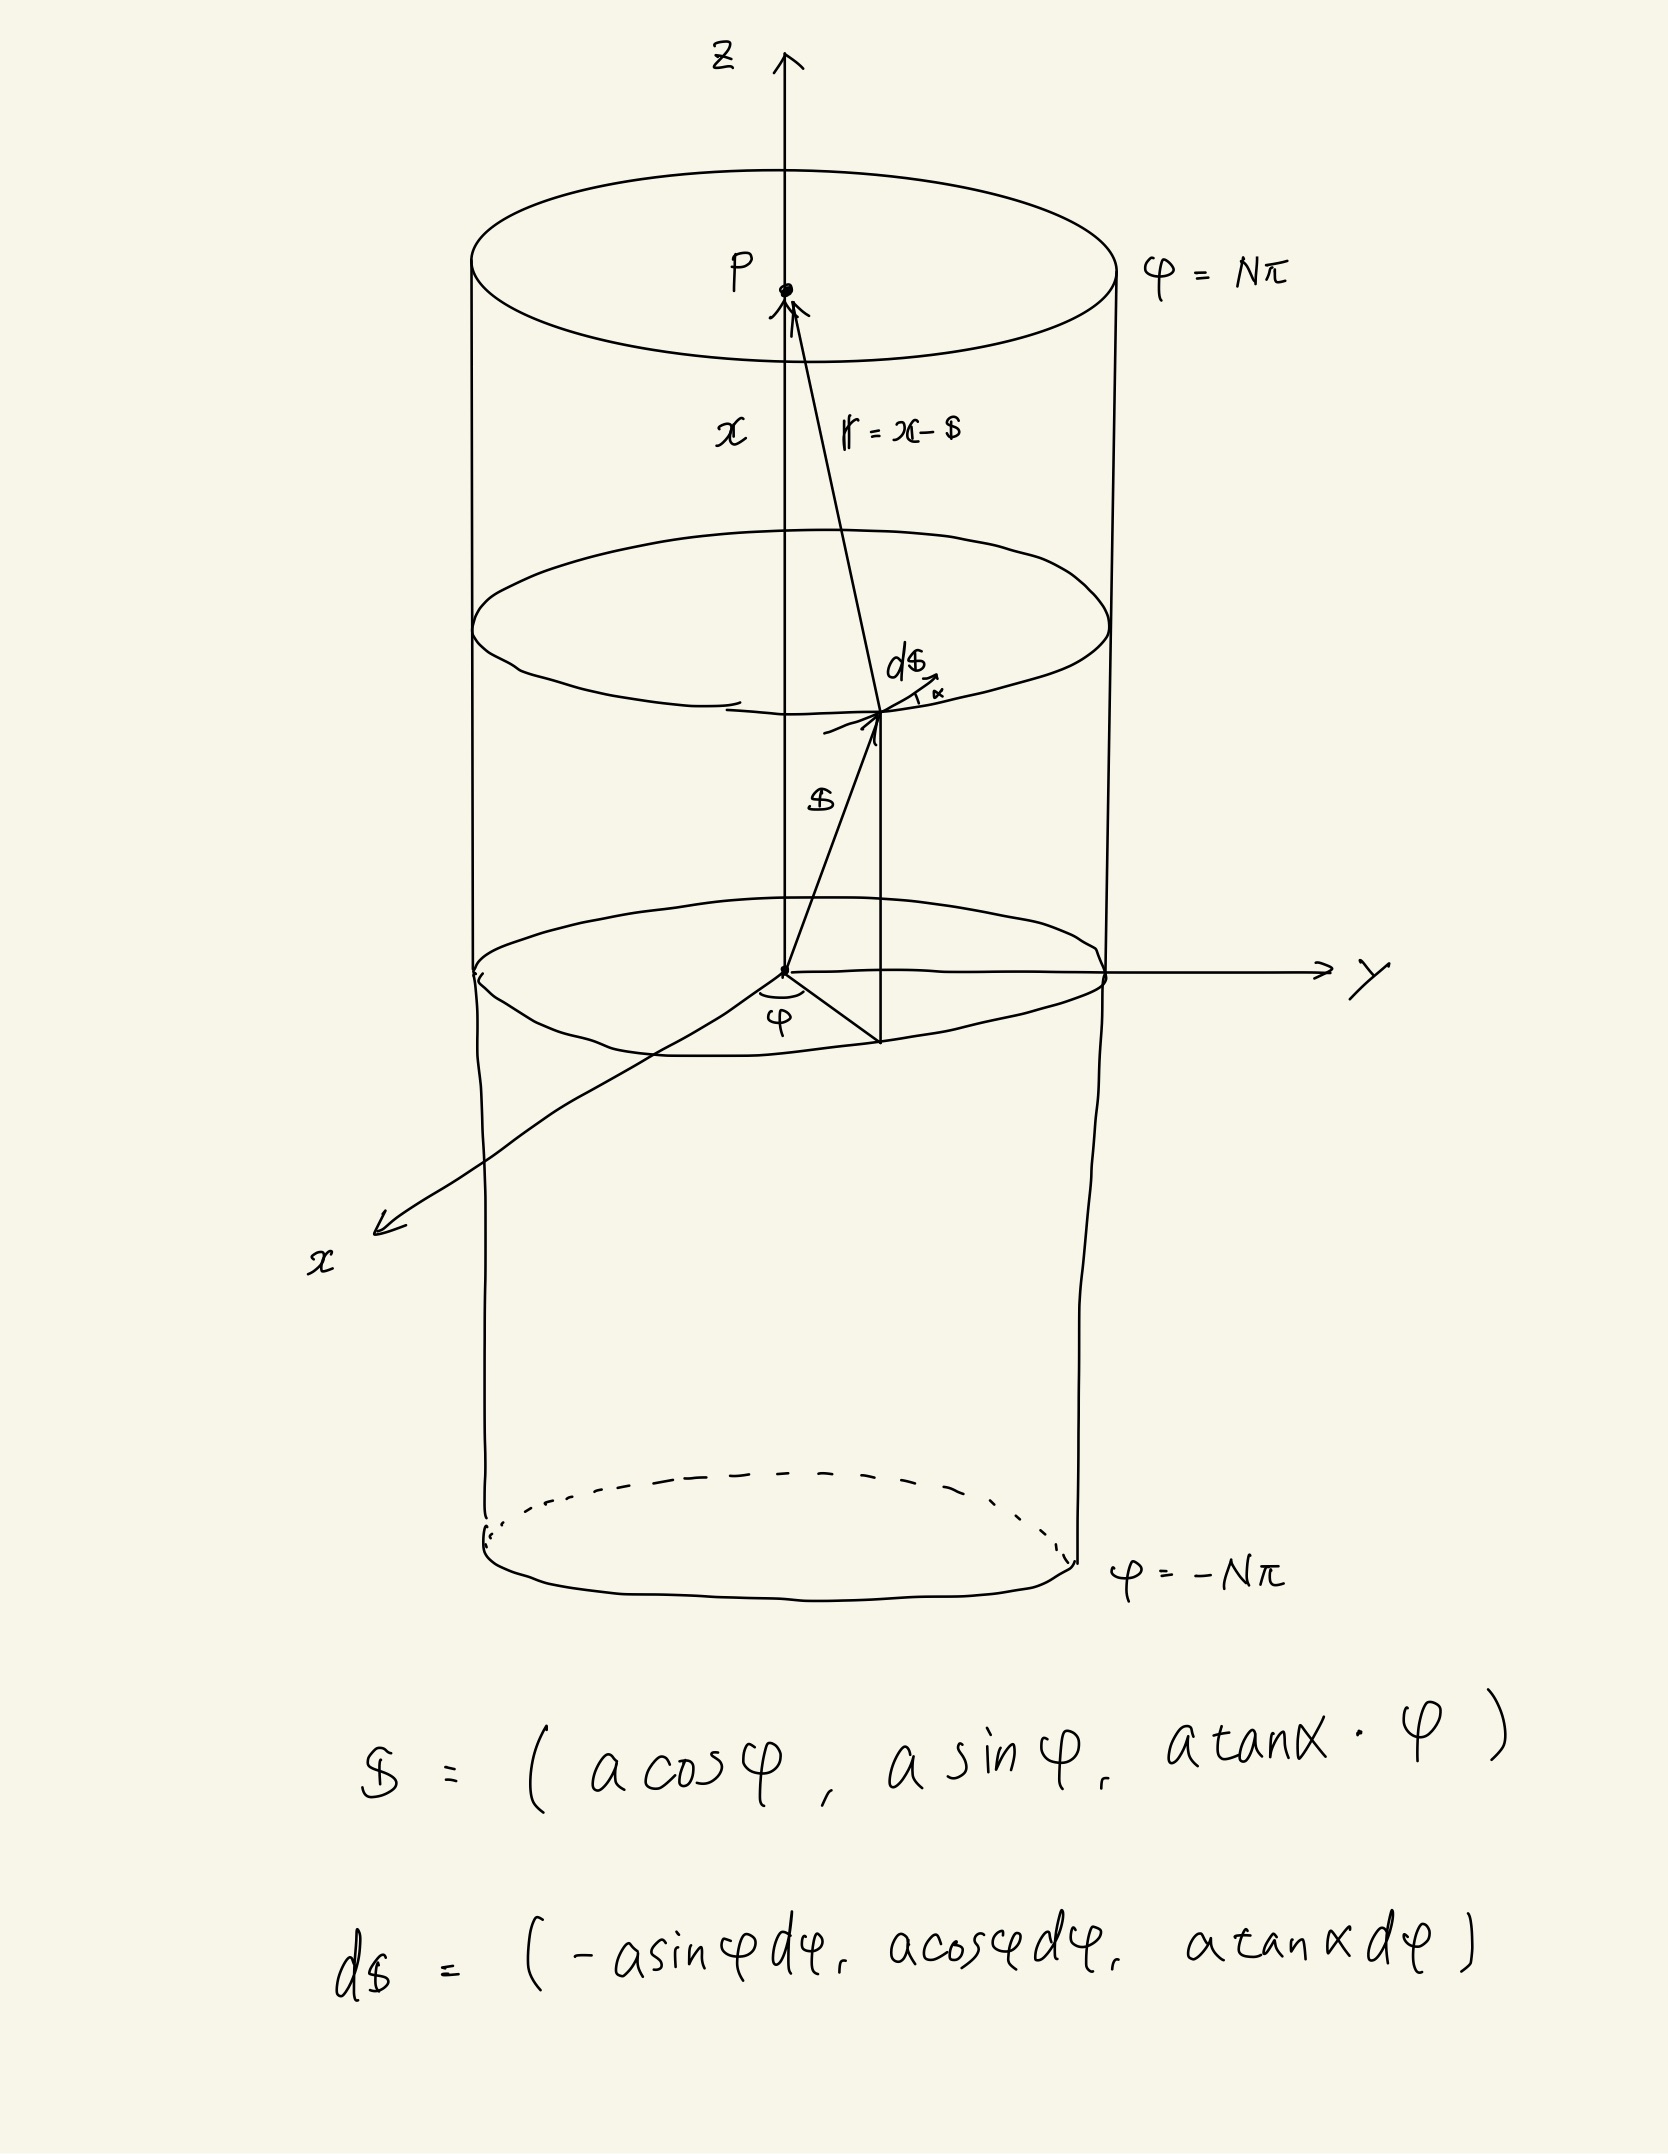 z
P
φ = Nπ
x
r = x - s
ds
α
s
y
φ
x
φ = -Nπ
s = ( a cosφ , a sinφ, a tanα · φ )
ds = ( - a sinφ dφ, a cosφ dφ, a tanα dφ )